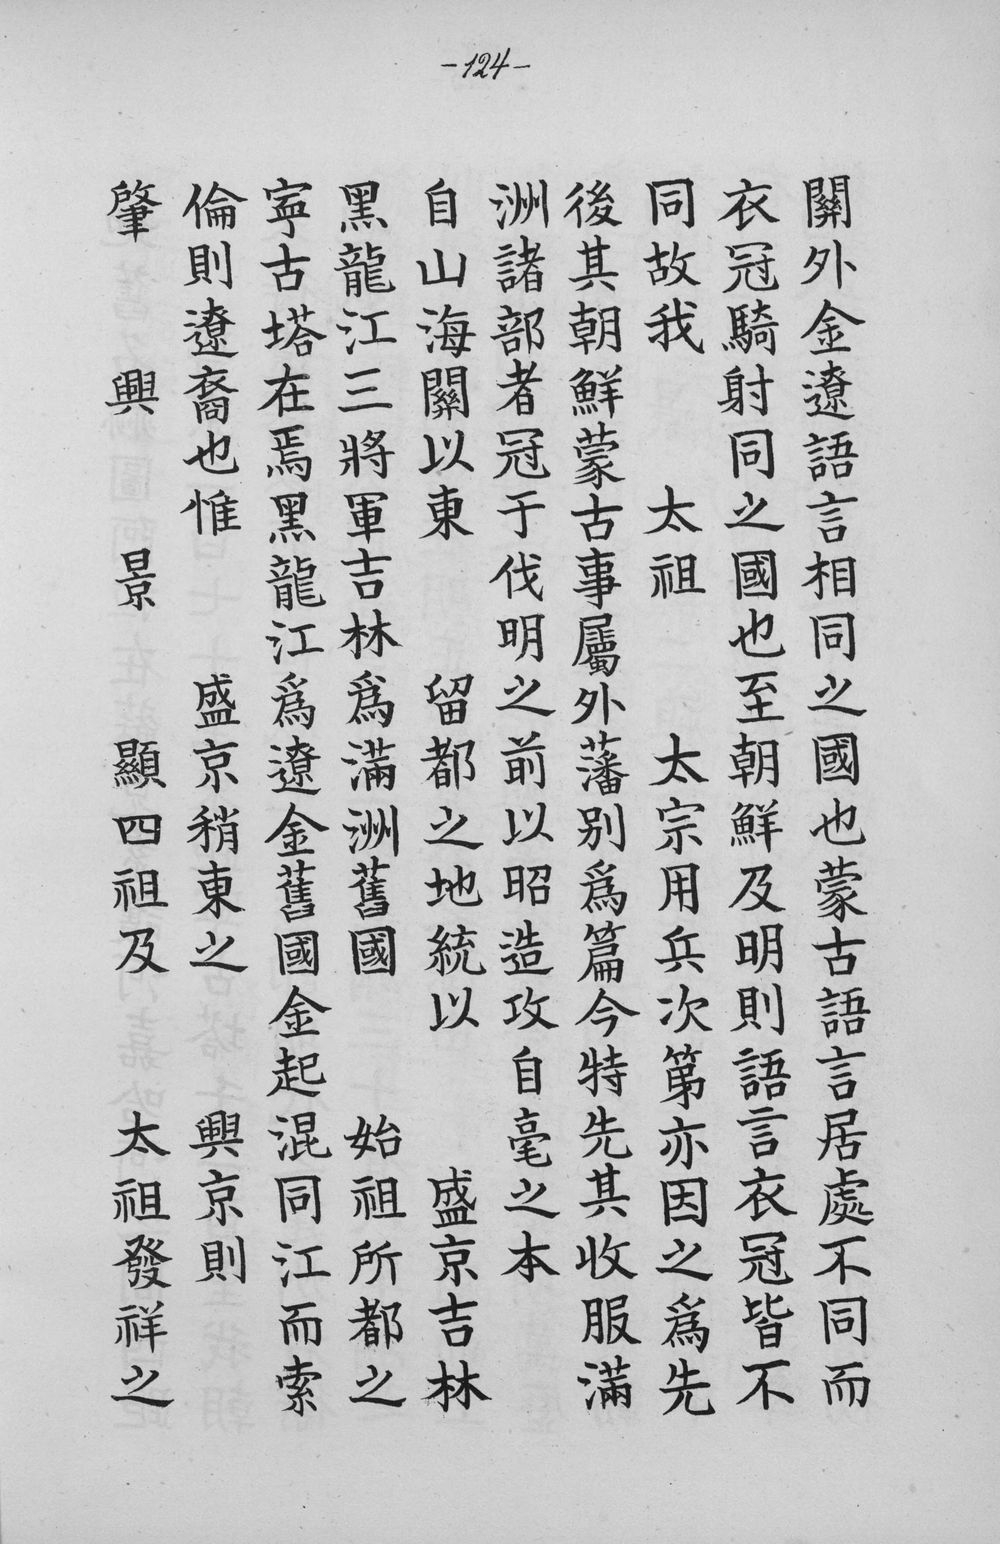 -124-
關外金遼語言相同之國也蒙古語言居處不同而
衣冠騎射同之國也至朝鮮及明則語言衣冠皆不
同故我　太祖　太宗用兵次第亦因之爲先
後其朝鮮蒙古事屬外藩別爲篇今特先其收服滿
洲諸部者冠于伐明之前以昭造攻自亳之本
自山海關以東　留都之地統以　盛京吉林
黑龍江三將軍吉林爲滿洲舊國　始祖所都之
寧古塔在焉黑龍江爲遼金舊國金起混同江而索
倫則遼裔也惟　盛京稍東之　興京則
肇　興　景　顯四祖及　太祖發祥之